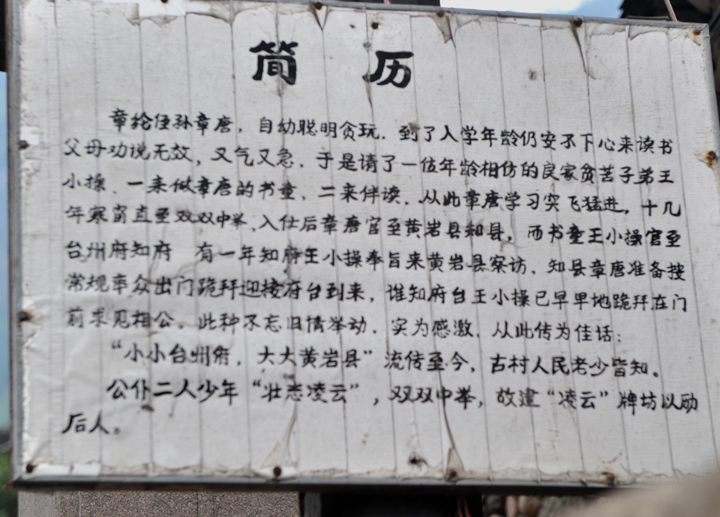 简历
章纶侄孙章唐，自幼聪明贪玩．到了入学年龄仍安不下心来读书
父母劝说无效，又气又急．于是请了一位年龄相仿的良家贫苦子弟王
小操．一来做章唐的书童，二来伴读．从此章唐学习突飞猛进，十几
年寒窗直至双双中举．入仕后章唐官至黄岩县知县，而书童王小操官至
台州府知府 有一年知府王小操奉旨来黄岩县察访．知县章唐准备按
常规率众出门跪拜迎接府台到来，谁知府台王小操已早早地跪拜在门
前求见相公．此种不忘旧情举动．实为感激．从此传为佳话：
“小小台州府，大大黄岩县”流传至今，古村人民老少皆知。
公仆二人少年“壮志凌云”，双双中举，故建“凌云”牌坊以励
后人。